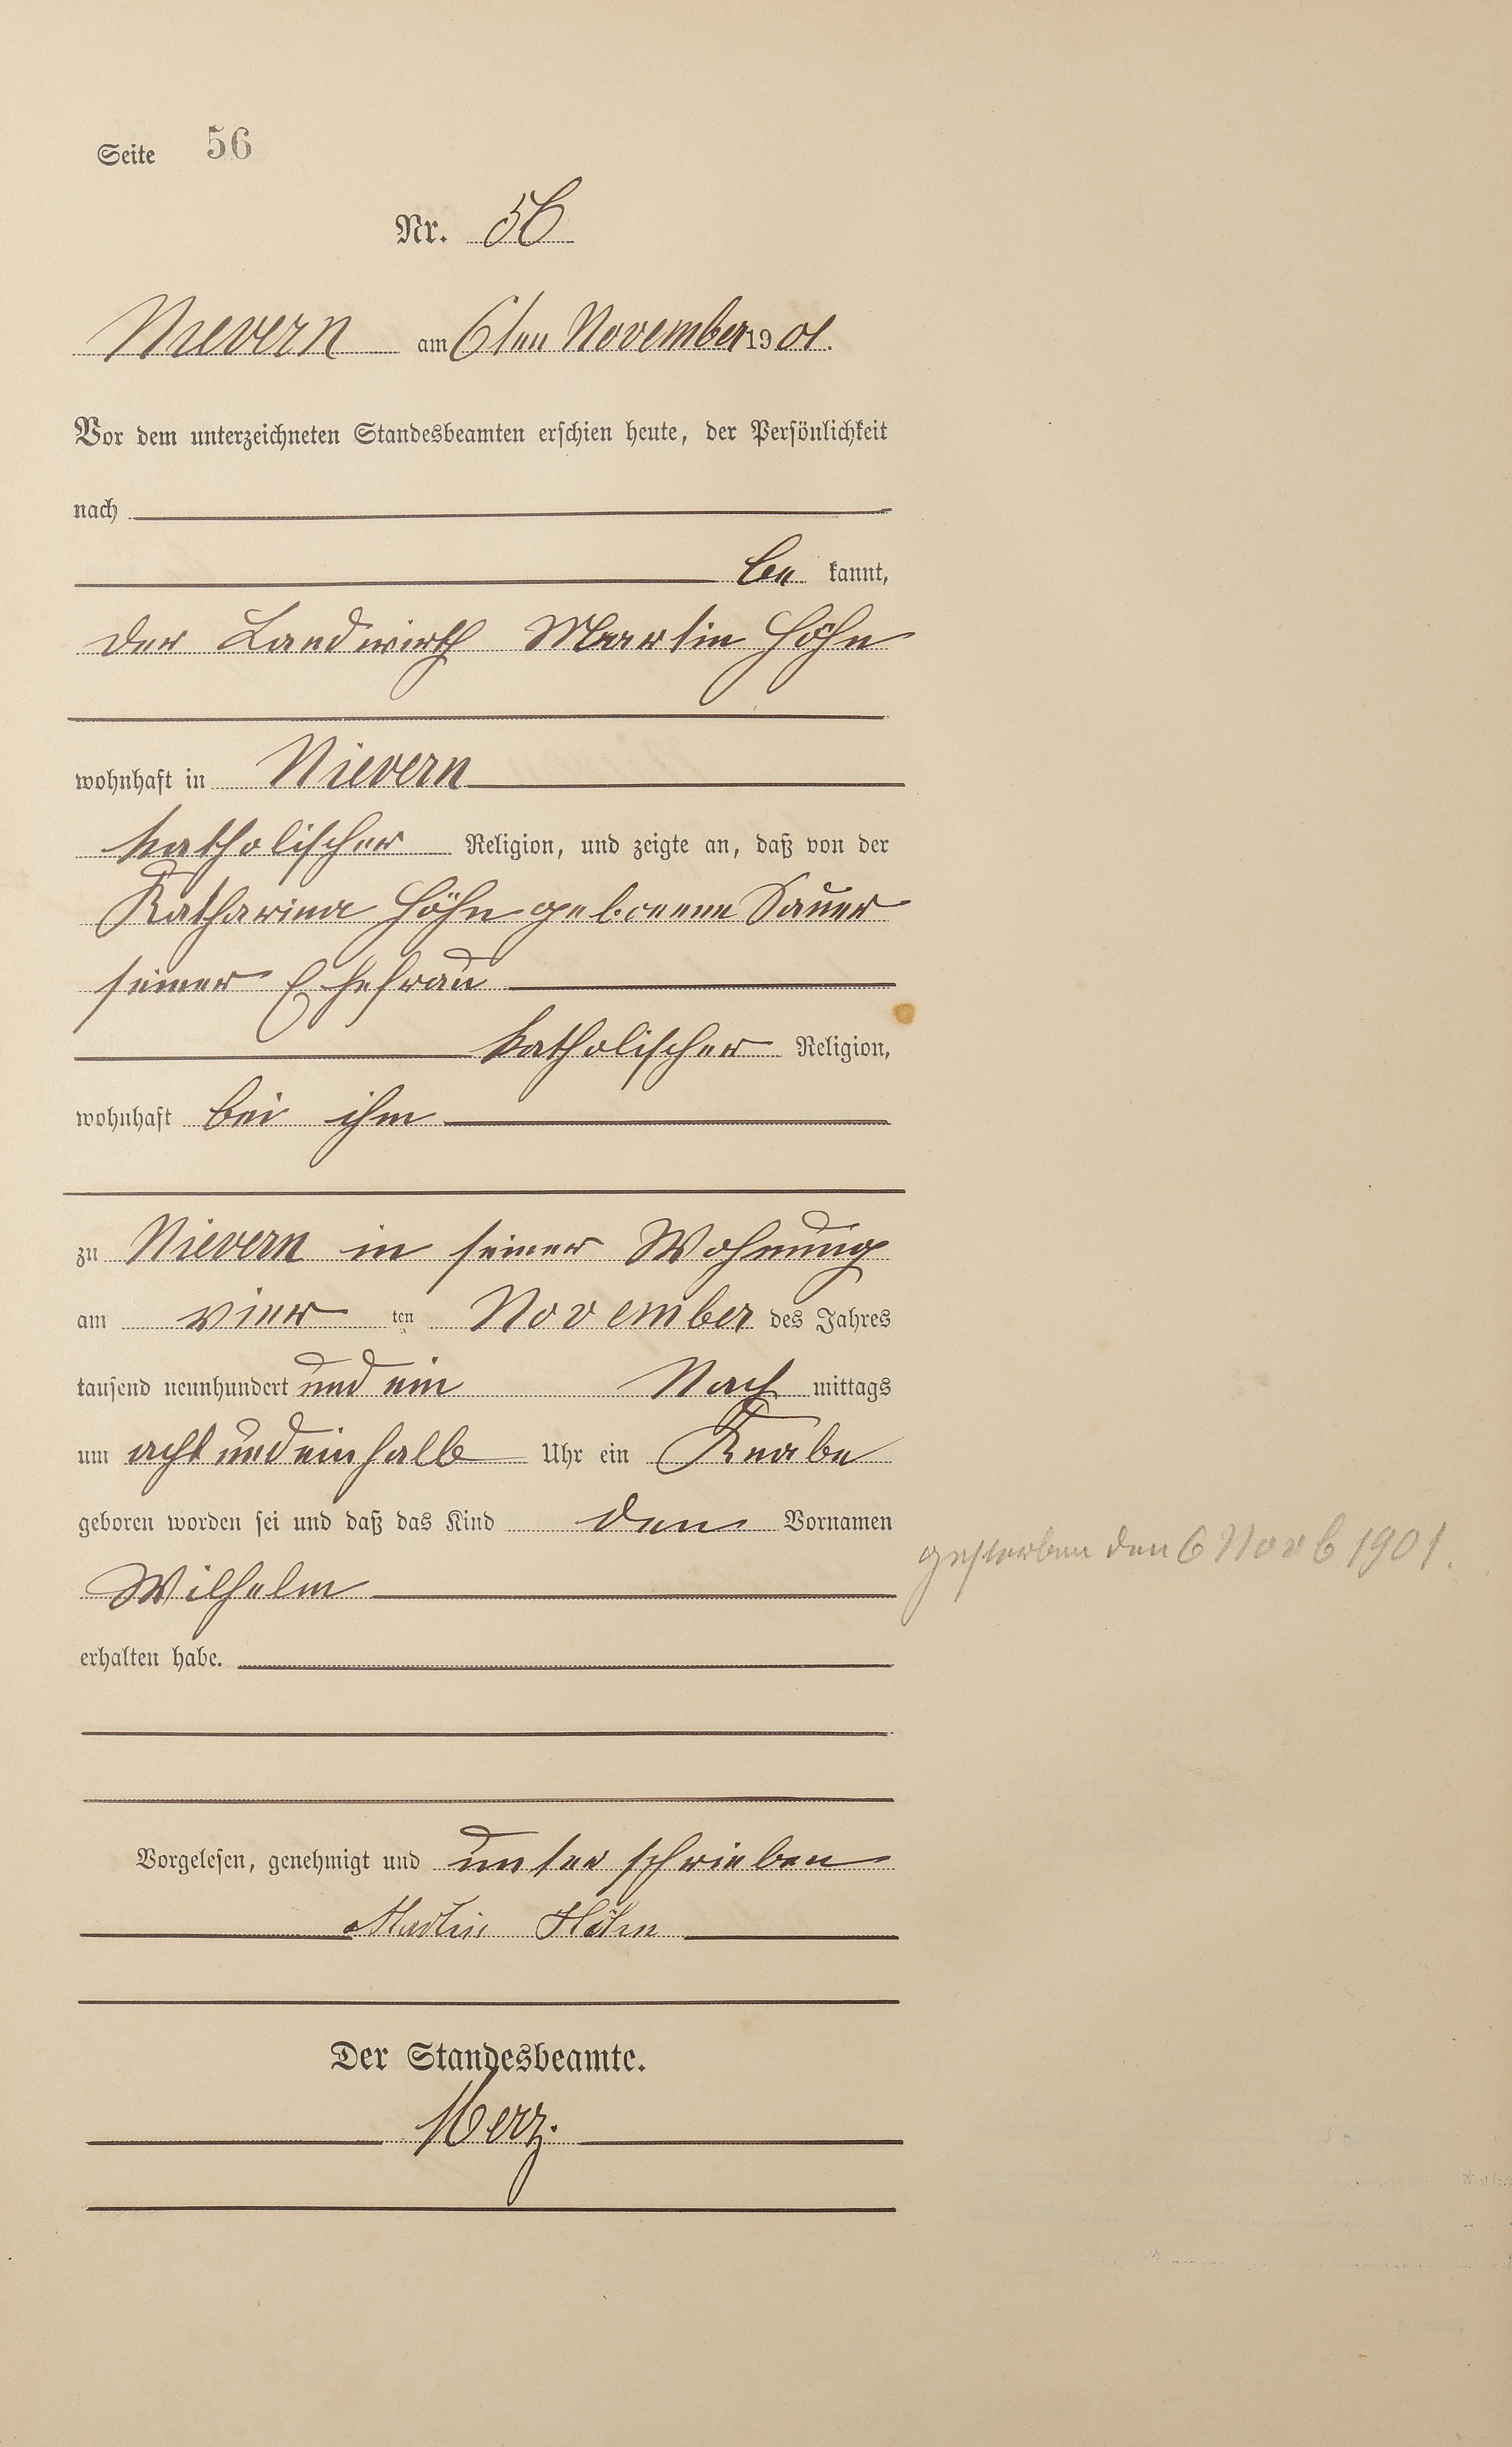 Seite 56
Nr. 56
Nievern am 6ten November 1901.
Vor dem unterzeichneten Standesbeamten erschien heute, der Persönlichkeit
nach
be kannt,
der Landwirth Martin Höhn
wohnhaft in Nievern
katholischer Religion, und zeigte an, daß von der
Katharina Höhn geborenen Sauer
seiner Ehefrau
katholischer Religion,
wohnhaft bei ihm
zu Nievern in seiner Wohnung
am vier ten November des Jahres
tausend neunhundert und ein Nach mittags
um acht und ein halb Uhr ein Knabe
geboren worden sei und daß das Kind den Vornamen
gestorben den 6 Novb 1901.
Wilhelm
erhalten habe.
Vorgelesen, genehmigt und unterschrieben
Martin Höhn
Der Standesbeamte.
Merz.